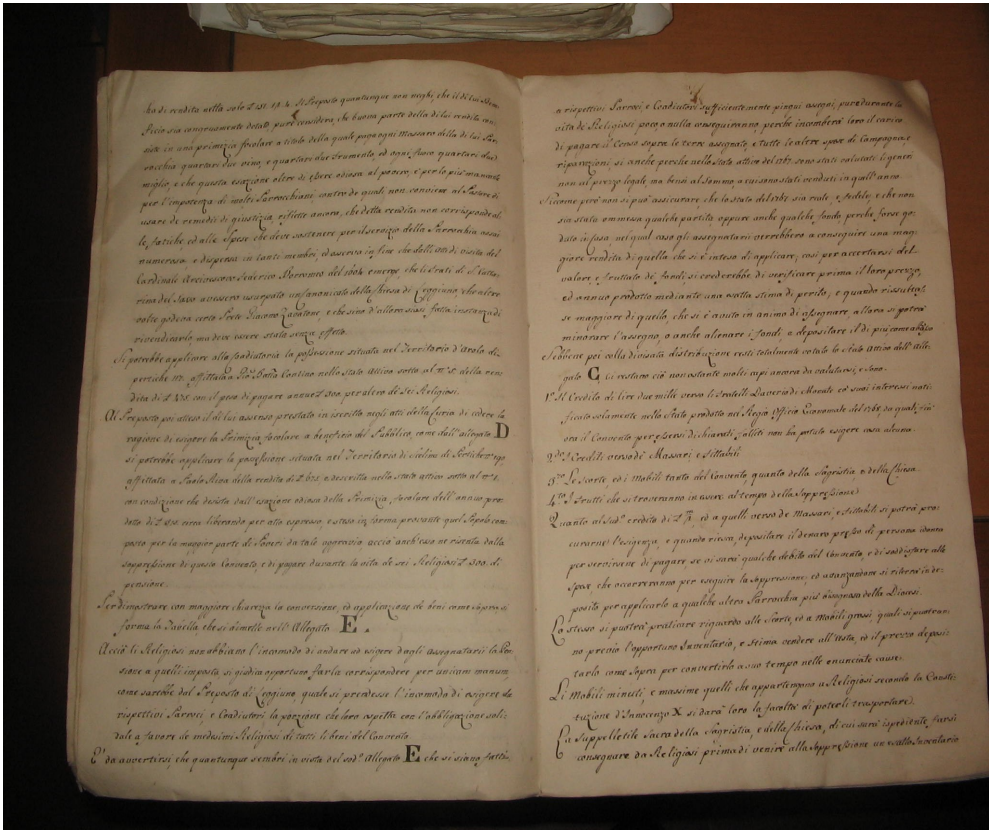 ha di rendita netta solo L 151. 19. 4. Il Preposto quantunque non neghi, che il di lui Bene-
ficio sia congruamente dotato, pure considera, che buona parte della di lui rendita con-
siste in una primizia focolare a titolo della quale paga ogni Massaro della di lui Par-
rocchia quartari due vino, e quartaro due frumento, ed ogni fuoco quartari due
miglio, e che questa esazione oltre di essere odiosa al povero, è per lo più mancante
per l'impotenza di molti Parrocchiani, contro de quali non conviene al Pastore di
usare de remedii di giustizia, riflette ancora, che detta rendita non corrisponde al-
le fatiche, ed alle Spese che deve sostenere per il servizio della Parrocchia assai
numerosa e dispersa in tanti membri, ed osserva in fine che dalli atti di visita del
Cardinale Arcivescovo Federico Borromeo del 1604 emerge, che li Frati di S. Catta-
rina del Sasso avessero usurpato un Canonicato della Chiesa di Leggiuno, che altre
volte godeva certo Prete Giacomo, e che sino d'allora siasi fatta instanza di
rivendicarlo, ma deve essere stata senza effetto.
Si potrebbe applicare alla Coadiutoria la possessione situata nel Territorio d'Arolo di
pertiche 117. affittata a Gio. Batta Contino nello Stato Attivo sotto al n.° 5. della ren-
dita di L 475. con il peso di pagare annue L 300. per alcro de sei Religiosi.
Al Preposto poi atteso il di lui assenso prestato in iscritto negli atti della Curia di cedere la
ragione di esigere la Primizia focolare a beneficio del Pubblico, come dall'allegato D
si potrebbe applicare la possessione situata nel Territorio di di Pertiche n.° 190,
affittata a Paolo della rendita di L 672. e descritta nello stato attivo sotto al n.°
con condizione che desista dall'esazione odiosa della Primizia focolare dell'annuo pro-
dotto di L 450. circa liberando per atto espresso, esteso in forma provante quel Popolo com-
posto per la maggior parte di Poveri da tale aggravio, acciò anch'esso ne risenta dalla
soppressione di questo Convento, e di pagare durante la vita de sei Religiosi L 300. di
pensione.
Per dimostrare con maggiore chiarezza la conversione, ed applicazione de beni come sopra si
forma la Tabella che si dimette nell'Allegato E.
Acciò li Religiosi non abbiano l'incomodo di andare ad esigere dagli assegnatarii la Pen-
sione a quelli imposta, si giudica opportuno farla corrispondere per unicam manum,
come sarebbe dal Preposto di Leggiuno, quale si prendesse l'incomodo di esigere da
rispettivi Parroci, e Coadiutori la porzione che loro spetta con l'obbligazione soli-
dale a favore de medesimi Religiosi di tutti li beni del Convento
E' da avvertirsi, che quantunque sembri in vista del sud.° Allegato E che si siano fatti
a rispettivi Parroci, e Coadiutori sufficientemente pingui assegni, pure durante la
vita de Religiosi poco, o nulla conseguiranno, perche incomberà loro il carico
di pagare il Censo sopra le terre assegnate, e tutte le altre spese di Campagna, e
riparazioni, si anche perche nello Stato attivo del 1767. sono stati valutati li generi
non al prezzo legale, ma bensì al sommo, a cui sono stati venduti in quell'anno.
Siccome però non si può assicurare che lo stato del 1767 sia reale, e fedele, e che non
sia stata ommessa qualche partita, oppure anche qualche fondo perche forse go-
duto in casa, nel qual caso gli assegnatarii verrebbero a conseguire una mag-
giore rendita di quella che si è inteso di applicare, così per accertarsi del
valore, e fruttato de fondi, si crederebbe di verificare prima il loro prezzo,
ed annuo prodotto mediante una esatta stima di perito, e quando risultas-
se maggiore di quello, che si è avuto in animo di assegnare, allora si potrà
minorare l'assegno, o anche alienare i fondi, e depositare il di più come abbasso
Sebbene poi colla divisata distribuzione resti totalmente votato lo Stato Attivo dell'Alle-
gato C ci restano ciò non ostante molti capi ancora da valutarsi, e sono.
1.° Il Credito de Lire due mille verso li Fratelli di, ed suoi interessi noti-
ficato solamente nello Stato prodotto nel Regio Officio Economale del 1768, da quali, fin
ora il Convento per essersi dichiarati falliti non ha potuto esigere cosa alcuna.
2.do I Crediti verso de Massari, e fittabili
3.zo Le scorte, ed i Mobili tanto del Convento, quanto della Sagristia, e della Chiesa
4.to I Frutti che si troveranno in essere al tempo della Soppressione
Quanto al Sud.° credito di L 2m ed a quelli verso de Massari, e fittabili si potrà pro-
curarne l'esigenza, e quando riesca, depositare il denaro presso di persona idonea
per servirsene di pagare se vi sarà qualche debito del Convento, e di soddisfare alle
Spese, che occorreranno per eseguire la Soppressione, ed avanzandone si riterrà in de-
posito per applicarlo a qualche altra Parrocchia più bisognosa della Diocesi.
Lo stesso si puotrà praticare riguardo alle Scorte, ed a Mobili grossi, quali si puotran-
no previo l'opportuno Inventario, e stima vendere all'Asta, ed il prezzo deposi-
tarlo come Sopra per convertirlo a suo tempo nelle enunciate cause.
Li Mobili minuti, e massime quelli che appartengono a Religiosi secondo la Consti-
tuzione d'Innocenzo X si darà loro la facoltà di poterli trasportare.
La Suppelletile Sacra della Sagristia, e della Chiesa, di cui sarà ispediente farsi
consegnare da Religiosi prima di venire alla Soppressione un esatto Inventario